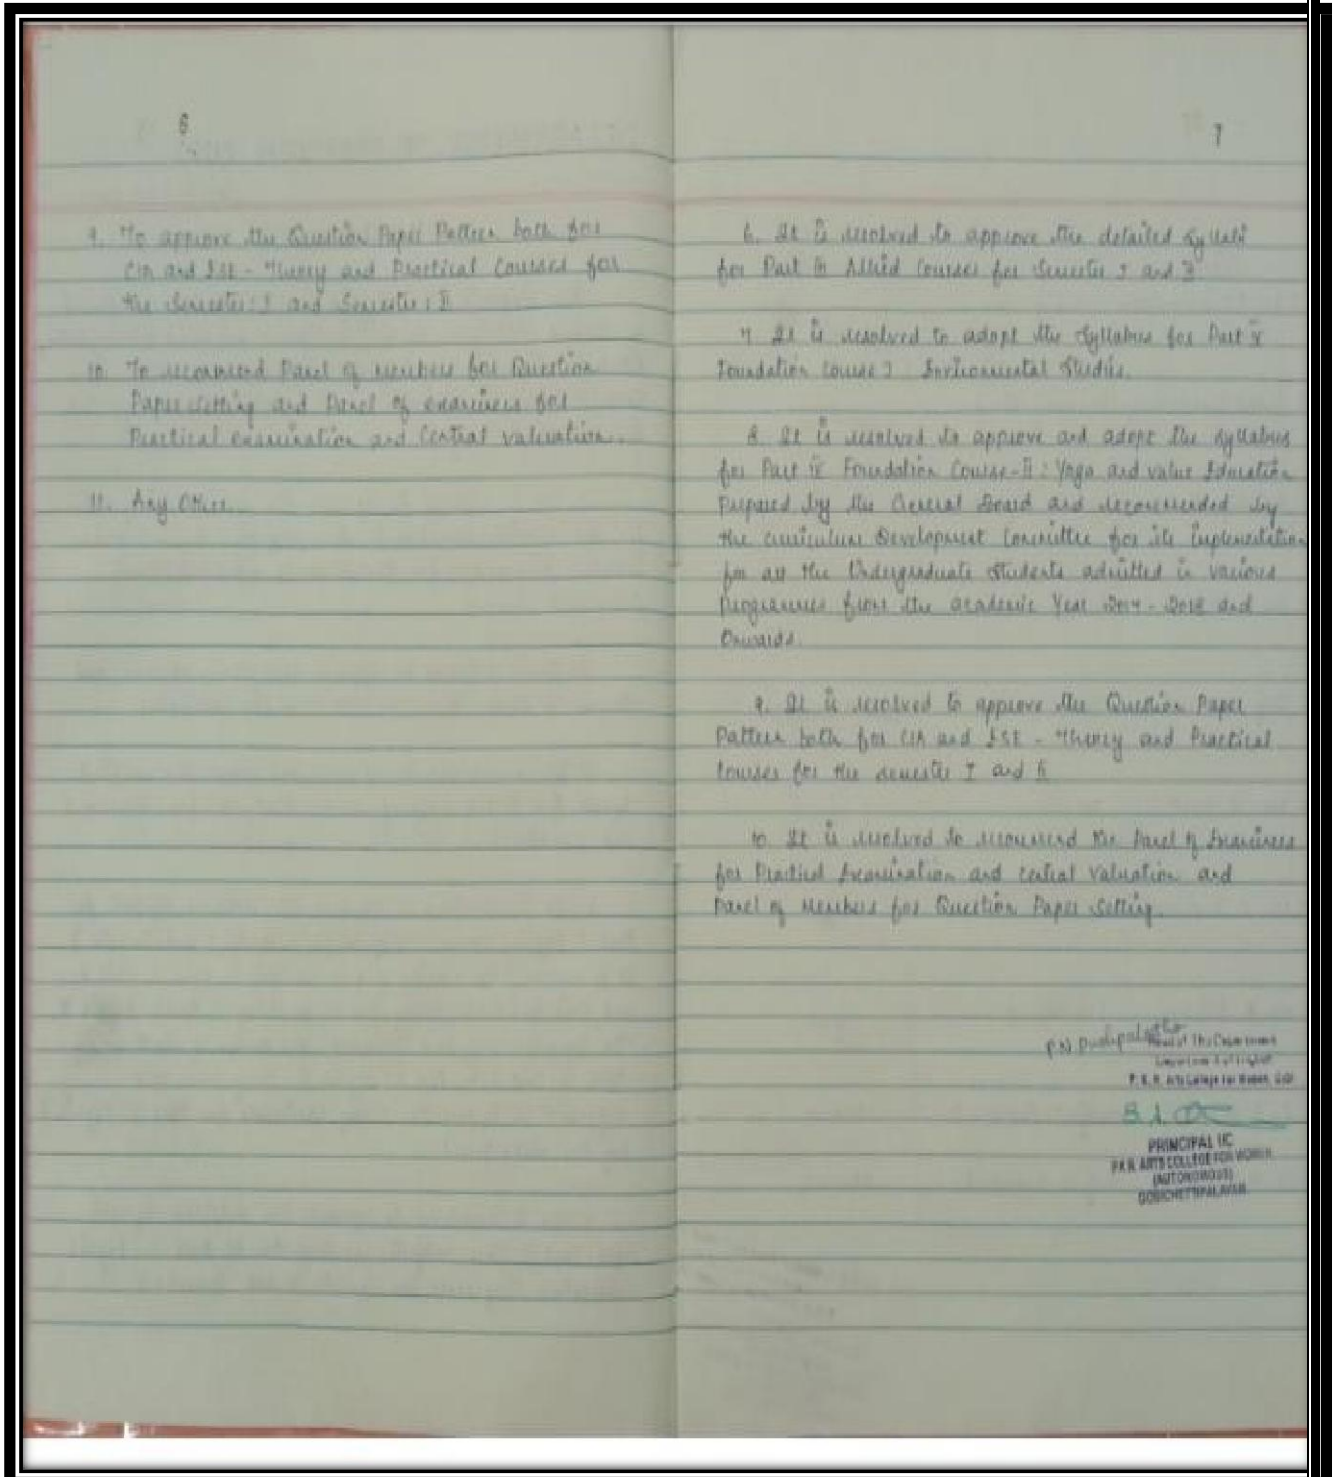 6
9. To approve the Question Paper Pattern both for
CIA and ESE - Theory and Practical Courses for
the Semester: I and Semester: II
10. To recommend Panel of Members for Question
Paper Setting and Panel of examiners for
Practical examination and Central valuation.
11. Any Other.
7
6. It is resolved to approve the detailed Syllabi
for Part III Allied Courses for Semester I and II
7. It is resolved to adopt the Syllabus for Part IV
Foundation Course I Environmental Studies.
8. It is resolved to approve and adopt the Syllabus
for Part IV Foundation Course-II: Yoga and value Education
Prepared by the General Board and recommended by
the curriculum Development Committee for its implementation
for all the Undergraduate Students admitted in various
Programmes from the academic Year and
Onwards.
9. It is resolved to approve the Question Paper
Pattern both for CIA and ESE - Theory and Practical
Courses for the semester I and II
10. It is resolved to recommend the Panel of Examiners
for Practical Examination and Central Valuation and
Panel of Members for Question Paper Setting.
P.N. Pushpalatha
Head of The Department
Department of English
P.K.R. Arts College for Women, Gobi
PRINCIPAL I/C
P.K.R. ARTS COLLEGE FOR WOMEN
(AUTONOMOUS)
GOBICHETTIPALAYAM